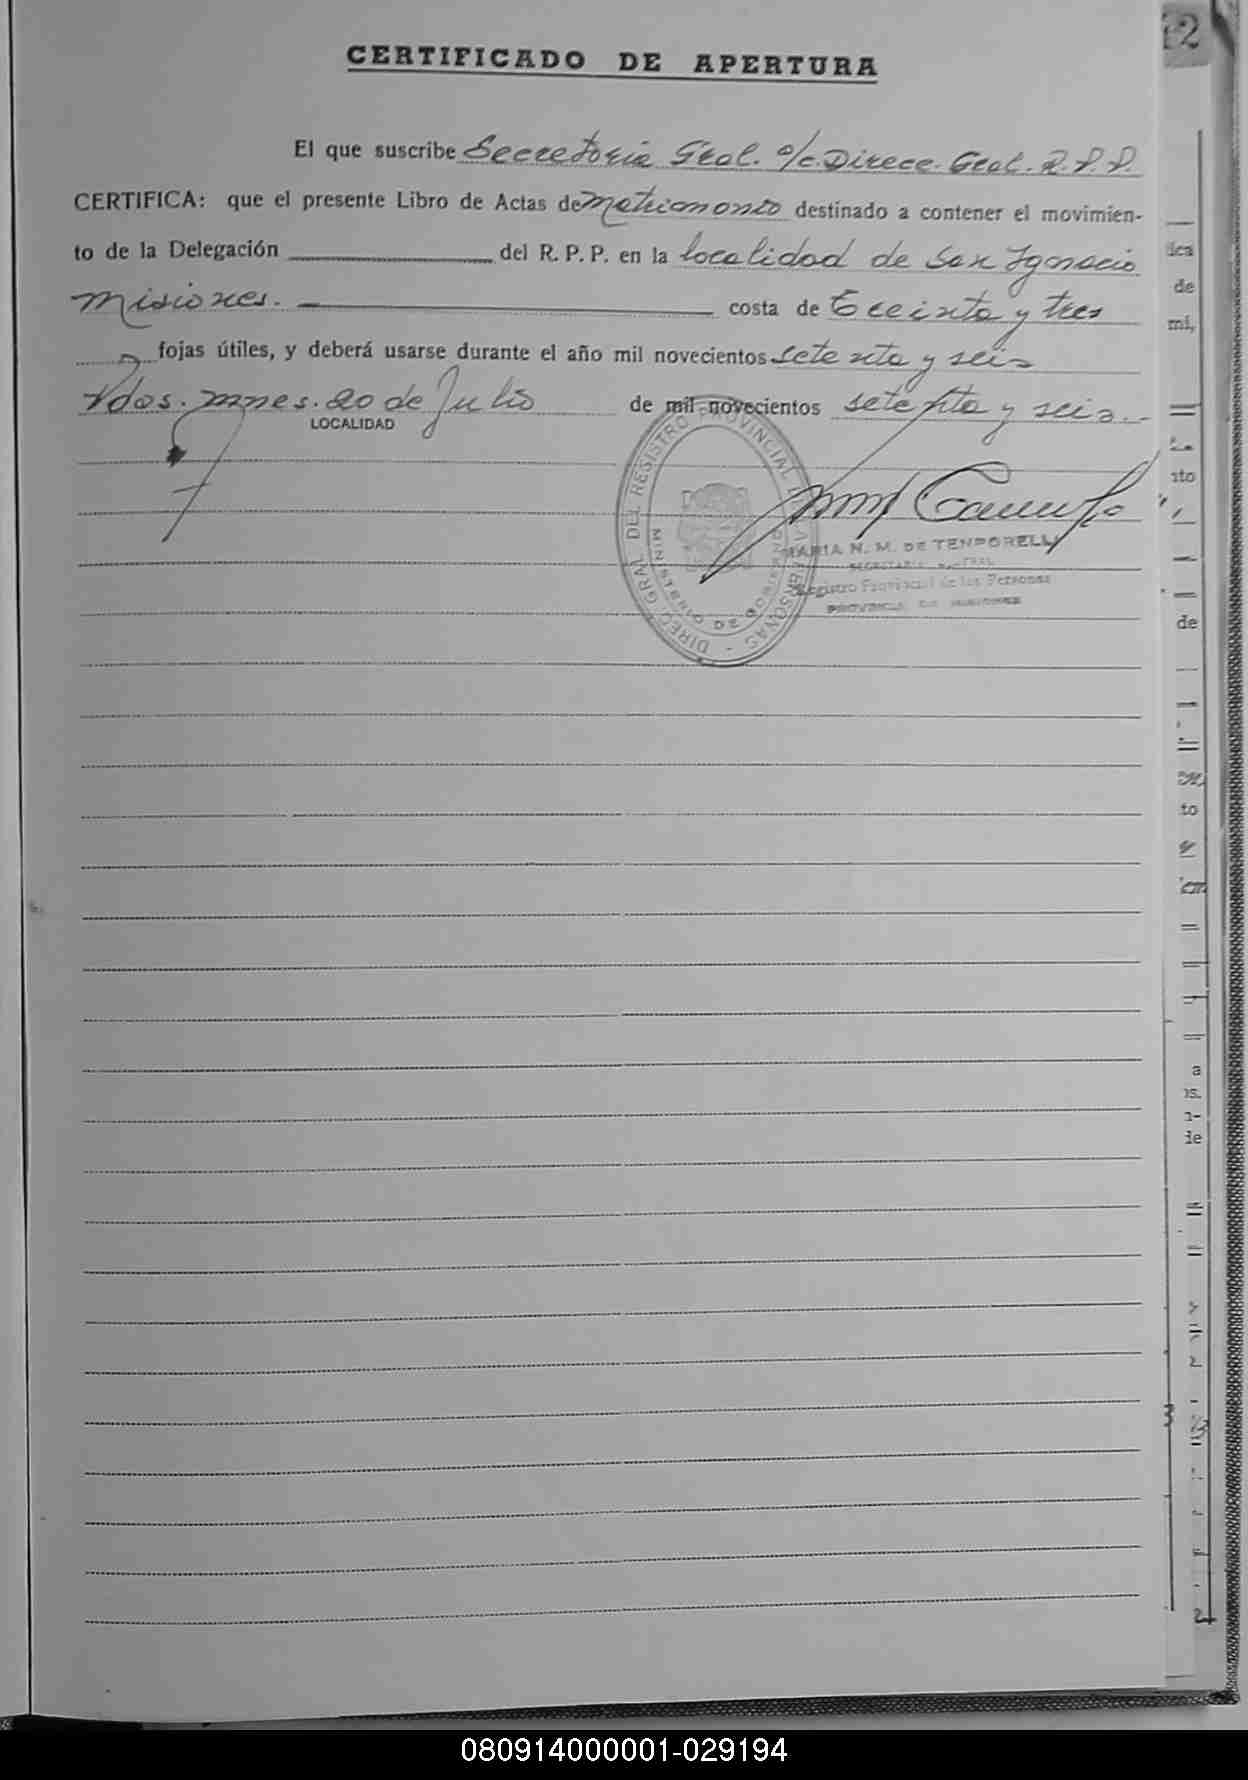 CERTIFICADO DE APERTURA
El que suscribe Secretoria Gral. a/c. Direcc. Gral. R.P.P.
CERTIFICA: que el presente Libro de Actas de Matrimonio destinado a contener el movimien-
to de la Delegación del R. P. P. en la localidad de San Ignacio
Misiones. costa de Treinta y tres
fojas útiles, y deberá usarse durante el año mil novecientos setenta y seis
Pdas. Mnes. 20 de Julio de mil novecientos setenta y seis.
LOCALIDAD
DIREC. GRAL. DEL REGISTRO PROVINCIAL PERSONAS
MINISTERIO DE GOBIERNO
MARIA N. M. DE TEMPORELLI
SECRETARIA
Registro Provincial de las Personas
PROVINCIA DE MISIONES
2
ica
de
mi,
to
de
to
a
os.
n-
de
3
080914000001-029194